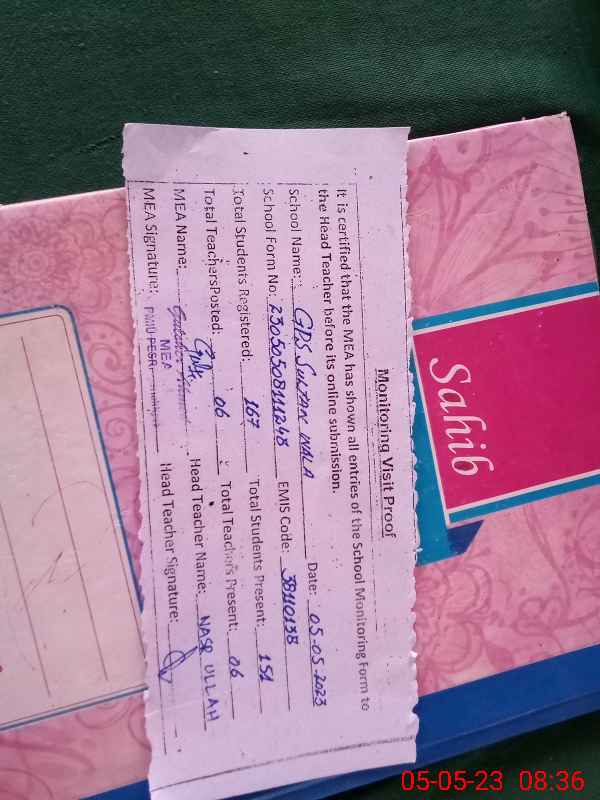 Monitoring Visit Proof
It is certified that the MEA has shown all entries of the School Monitoring Form to
the Head Teacher before its online submission.
School Name: GPS SULTAN WALA Date: 05-05-2023
School Form No: 23050508111248 EMIS Code: 38110138
Total Students Registered: 167 Total Students Present: 151
Total TeachersPosted: 06 Total Teachers Present: 06
MEA Name: Head Teacher Name: NASR ULLAH
MEA Signature: MEA Head Teacher Signature:
PMIU-PESRP
Sahib
05-05-23 08:36